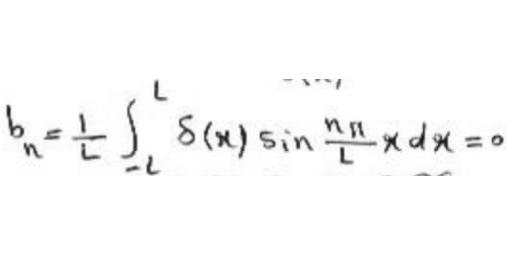 b_n = \frac{1}{L} \int_{-L}^{L} δ(x) sin \frac{nπ}{L} x dx = 0